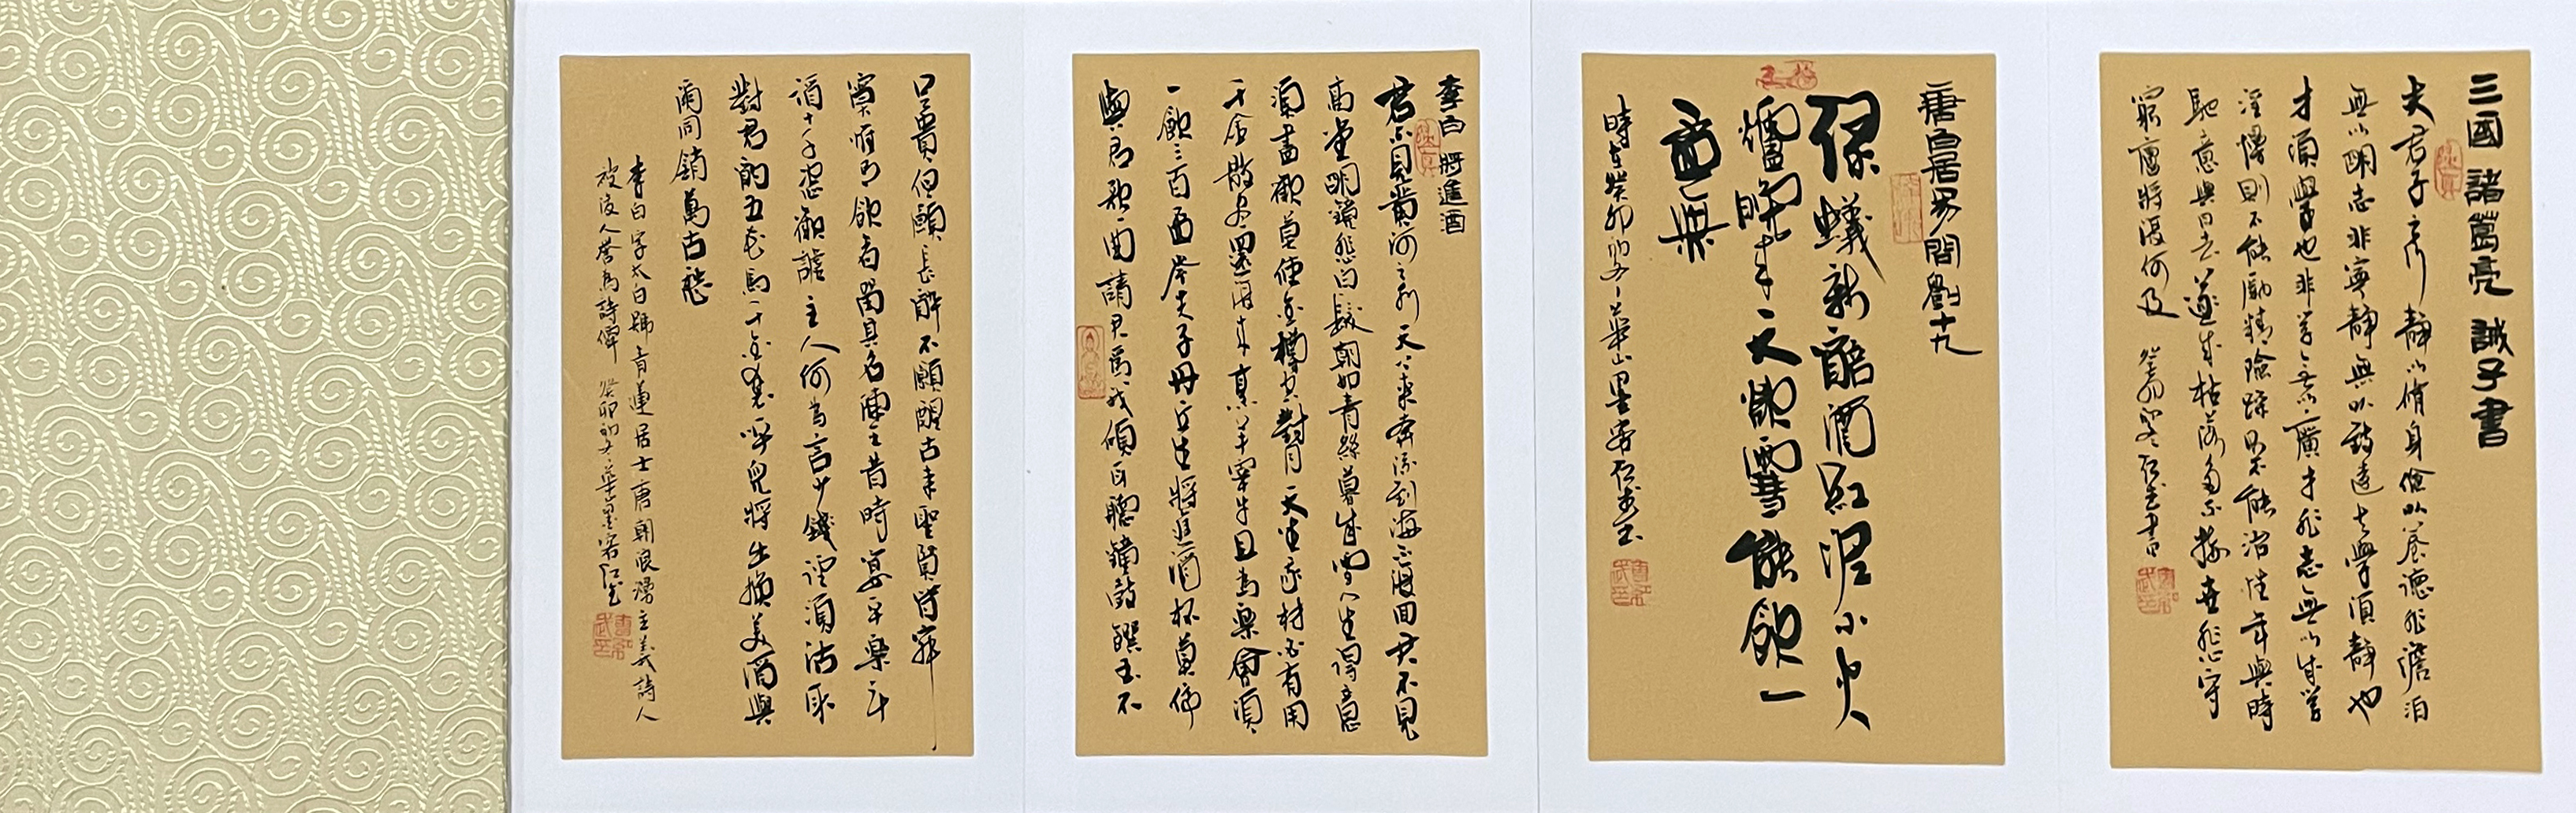 三國 諸葛亮 誡子書
夫君子之行靜以脩身儉以養德非澹泊
無以明志非寧靜無以致遠夫學須靜也
才須學也非學無以廣才非志無以成學
淫慢則不能勵精險躁則不能治性年與時
馳意與日去遂成枯落多不接世悲守
窮廬將復何及 癸卯
唐白居易問劉十九
綠蟻新醅酒紅泥小火
爐晚來天欲雪能飲一
盃無
時在癸卯初冬華山墨客
李白 將進酒
君不見黃河之水天上來奔流到海不復回君不見
高堂明鏡悲白髮朝如青絲暮成雪人生得意
須盡歡莫使金樽空對月天生我材必有用
千金散盡還復來烹羊宰牛且為樂會須
一飲三百盃岑夫子丹丘生將進酒杯莫停
與君歌一曲請君為我傾耳聽鐘鼓饌玉不
足貴但願長醉不願醒古來聖賢皆寂
寞惟有飲者留其名陳王昔時宴平樂斗
酒十千恣歡謔主人何為言少錢徑須沽取
對君酌五花馬千金裘呼兒將出換美酒與
爾同銷萬古愁
李白字太白號青蓮居士唐朝浪漫主義詩人
被後人譽為詩僊 癸卯初冬華山墨客